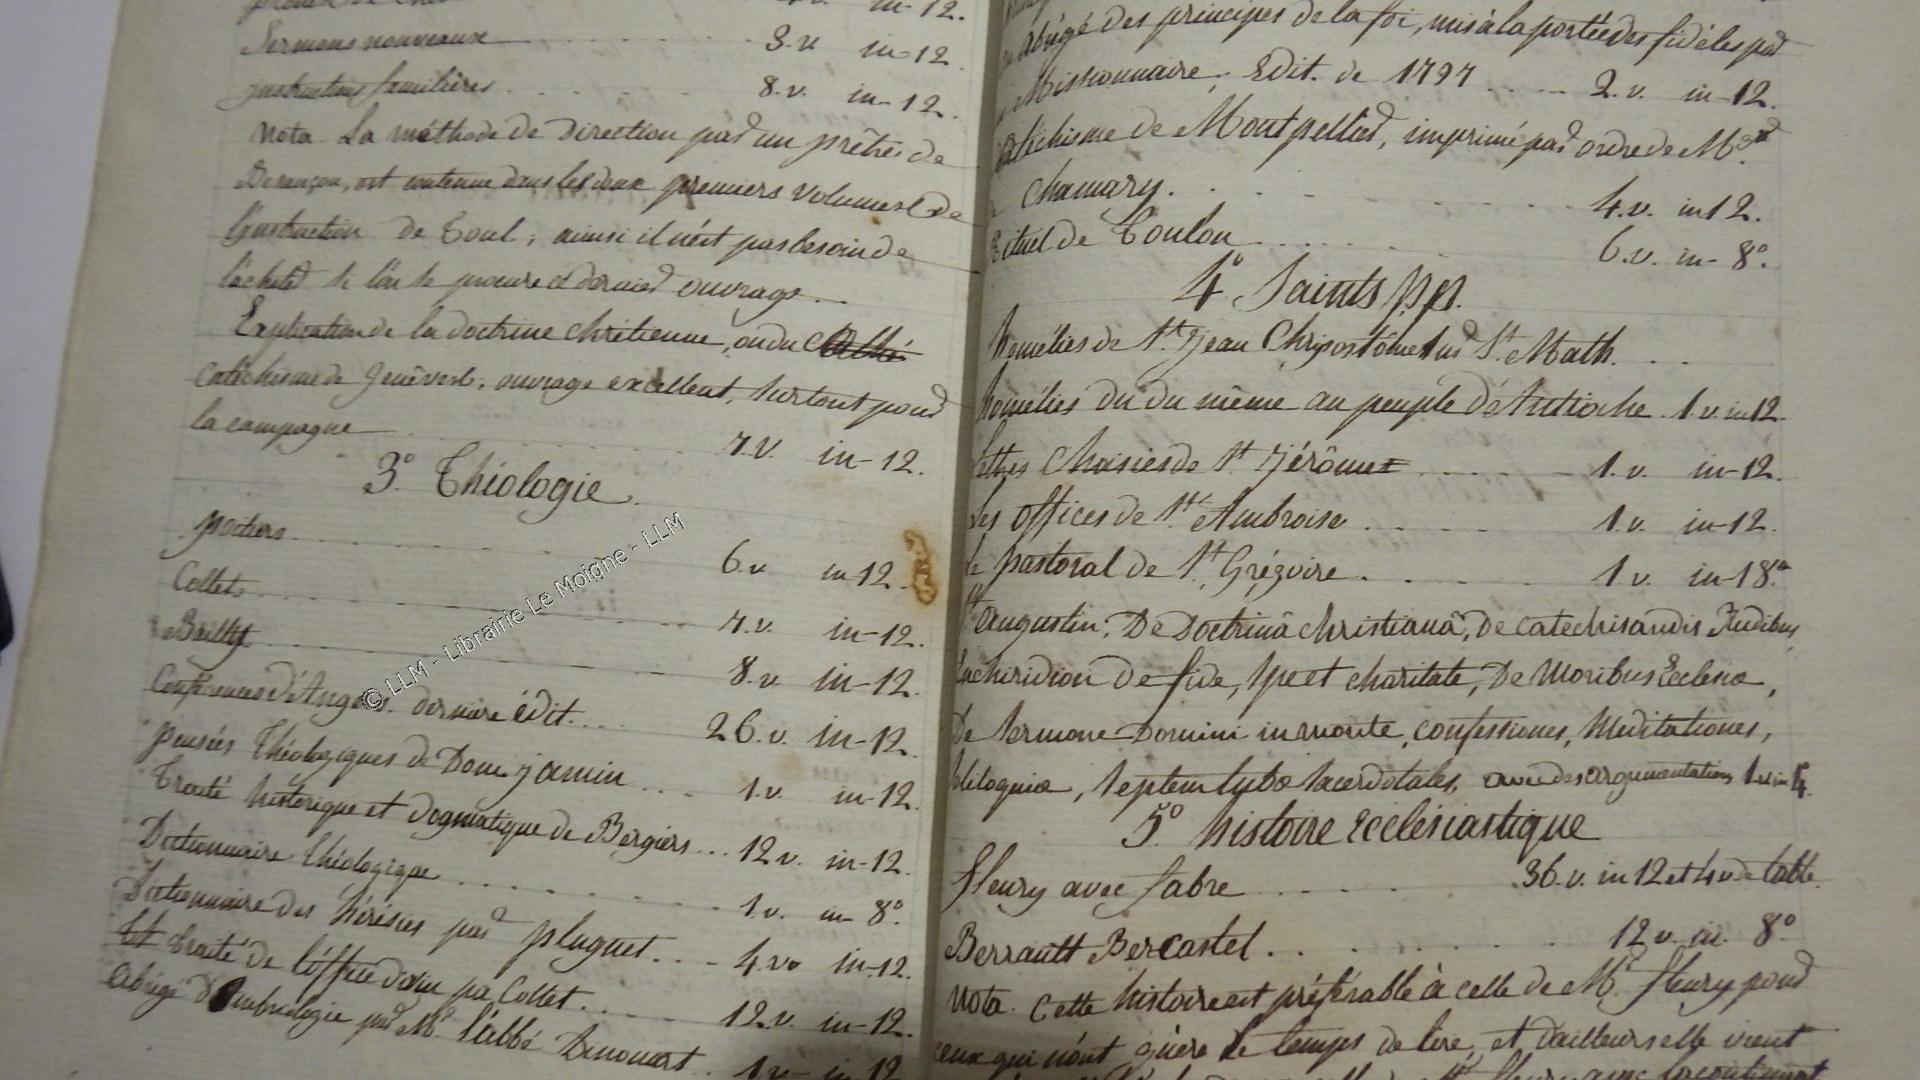 in-12.
Sermons nouveaux 3.v. in-12.
instructions familières 8.v. in-12.
Nota. La méthode de Direction par un prêtre de
Besançon, est contenue dans les deux premiers volumes de
l'instruction de Toul; ainsi il n'est pas besoin de
l'acheter si l'on se procure ce dernier ouvrage.
Explication de la doctrine chrétienne, ou du Cathé
Catéchisme de ; ouvrage excellent, surtout pour
la campagne 4.v. in-12.
3.° Théologie.
Poitiers 6.v. in-12.
Collet 4.v. in-12.
Bailly 8.v. in-12.
Conférences d'Angers. dernière édit. 26.v. in-12.
pensées Théologiques de Dom jamin 1.v. in-12.
Traité historique et dogmatique de Bergiers 12.v. in-12.
Dictionnaire Théologique 1.v. in-8.°
Dictionnaire des hérésies par pluquet 4.v. in-12.
Et traité de l'office divin par Collet 12.v. in-12.
abrégé d'Embriologie par Mr. l'abbé Dinouart 1.v. in-12
abrégé des principes de la foi, mis à la portée des fidéles par
Missionnaire, Edit. de 1797 2.v. in-12.
Catéchisme de Montpellier, imprimé par ordre de Mgr.
Chamary. 4.v. in 12.
Rituel de Toulon 6.v. in-8.°
4.° Saints p.p.
homélies de St. jean Chrysostôme sur St. Math.
homélies du du même au peuple d'Antioche 1.v. in 12
lettres Choisies de St. jérôme 1.v. in-12.
Les offices de St. Ambroise 1.v. in-12.
Le pastoral de St. Grégoire 1.v. in-18.
St. augustin, De Doctrinâ christianâ, de catechisandis Rudibus,
Enchiridion de fide, spe et charitate, De Moribus Ecclesiæ,
De Sermone Domini in monte, confessiones, Meditationes,
Soliloquia, Septem tubæ sacerdotales, avec des argumentations 1 vol. in 4.
5.° histoire Ecclésiastique
Fleury avec fabre 36.v. in 12 et 4 v. de table.
Berrault Bercastel. 12 v. in 8.°
Nota. Cette histoire est préférable à celle de Mr. fleury pour
ceux qui n'ont guère le temps de lire, et d'ailleurs elle vient
© LLM - Librairie Le Moigne - LLM